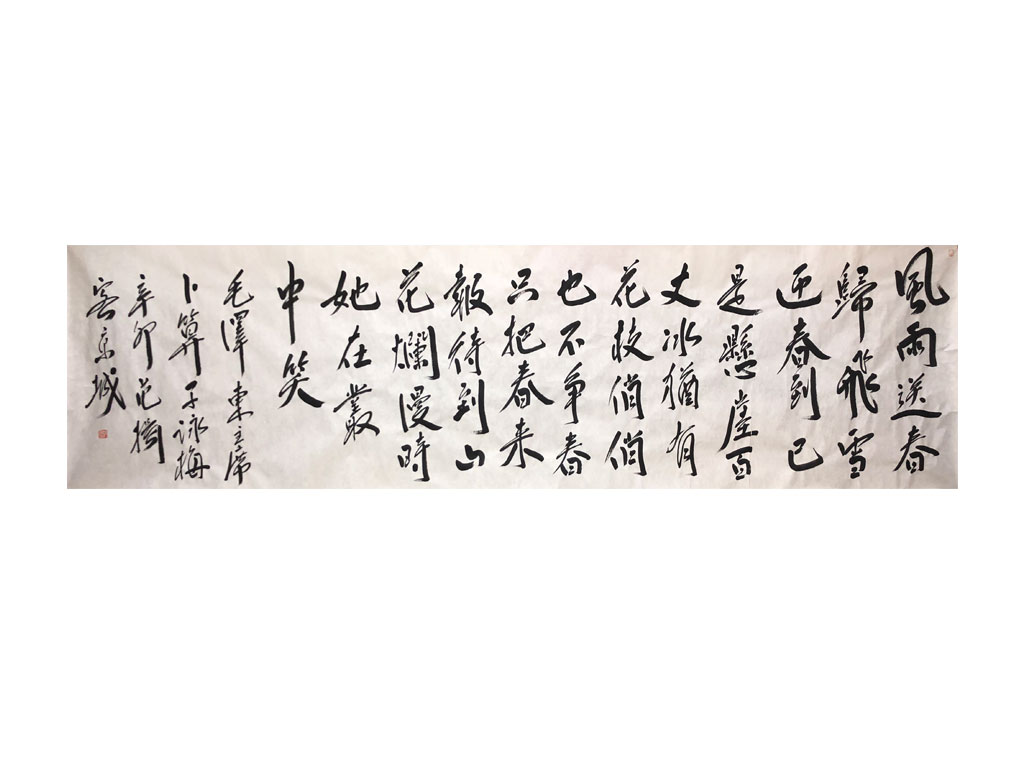 風雨送春
歸飛雪
迎春到已
是懸崖百
丈冰猶有
花枝俏俏
也不争春
只把春来
報待到山
花爛漫時
她在叢
中笑
毛澤東主席
卜算子詠梅
辛卯范
客京城